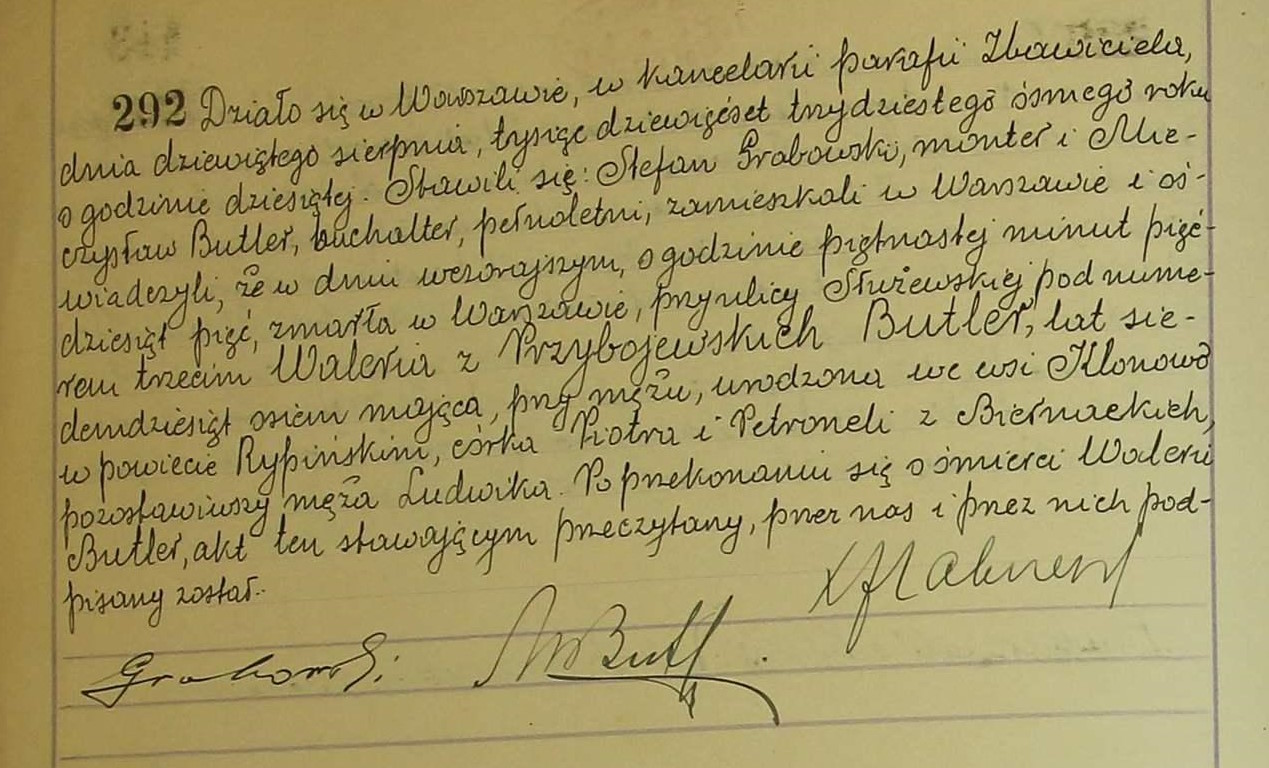 292 Działo się w Warszawie, w kancelarii parafii Zbawiciela,
dnia dziewiątego sierpnia, tysiąc dziewięćset trzydziestego ósmego roku
o godzinie dziesiątej. Stawili się: Stefan Grabowski, monter i Mie-
czysław Butler, buchalter, pełnoletni, zamieszkali w Warszawie i oś-
wiadczyli, że w dniu wczorajszym, o godzinie piętnastej minut pięć-
dziesiąt pięć, zmarła w Warszawie, przy ulicy Służewskiej pod nume-
rem trzecim Waleria z Przybojewskich Butler, lat sie-
demdziesiąt osiem mająca, przy mężu, urodzona we wsi Klonowo
w powiecie Rypińskim, córka Piotra i Petroneli z Biernackich,
pozostawiwszy męża Ludwika. Po przekonaniu się o śmierci Walerii
Butler, akt ten stawającym przeczytany, przez nas i przez nich pod-
pisany został.
Grabowski MButl